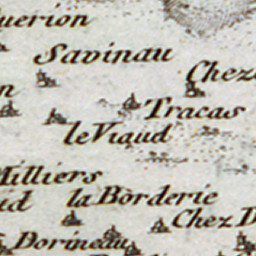 uerion
Savinau
Chez
n
Tracas
le Viaud
Milliers
ud
la Borderie
Chez D
Dorineau